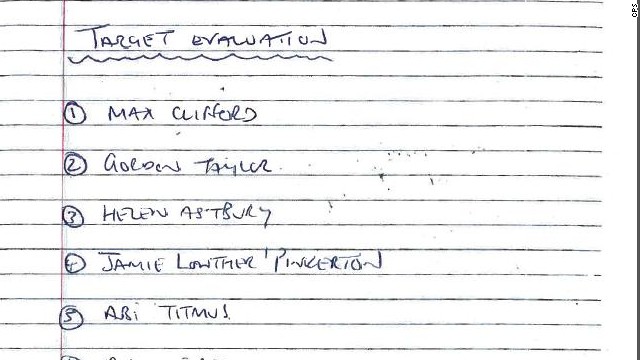 TARGET EVALUATION
① MAX CLIFFORD
② GORDON TAYLOR
③ HELEN ASTBURY
④ JAMIE LOWTHER PINKERTON
⑤ ABI TITMUS
CPS